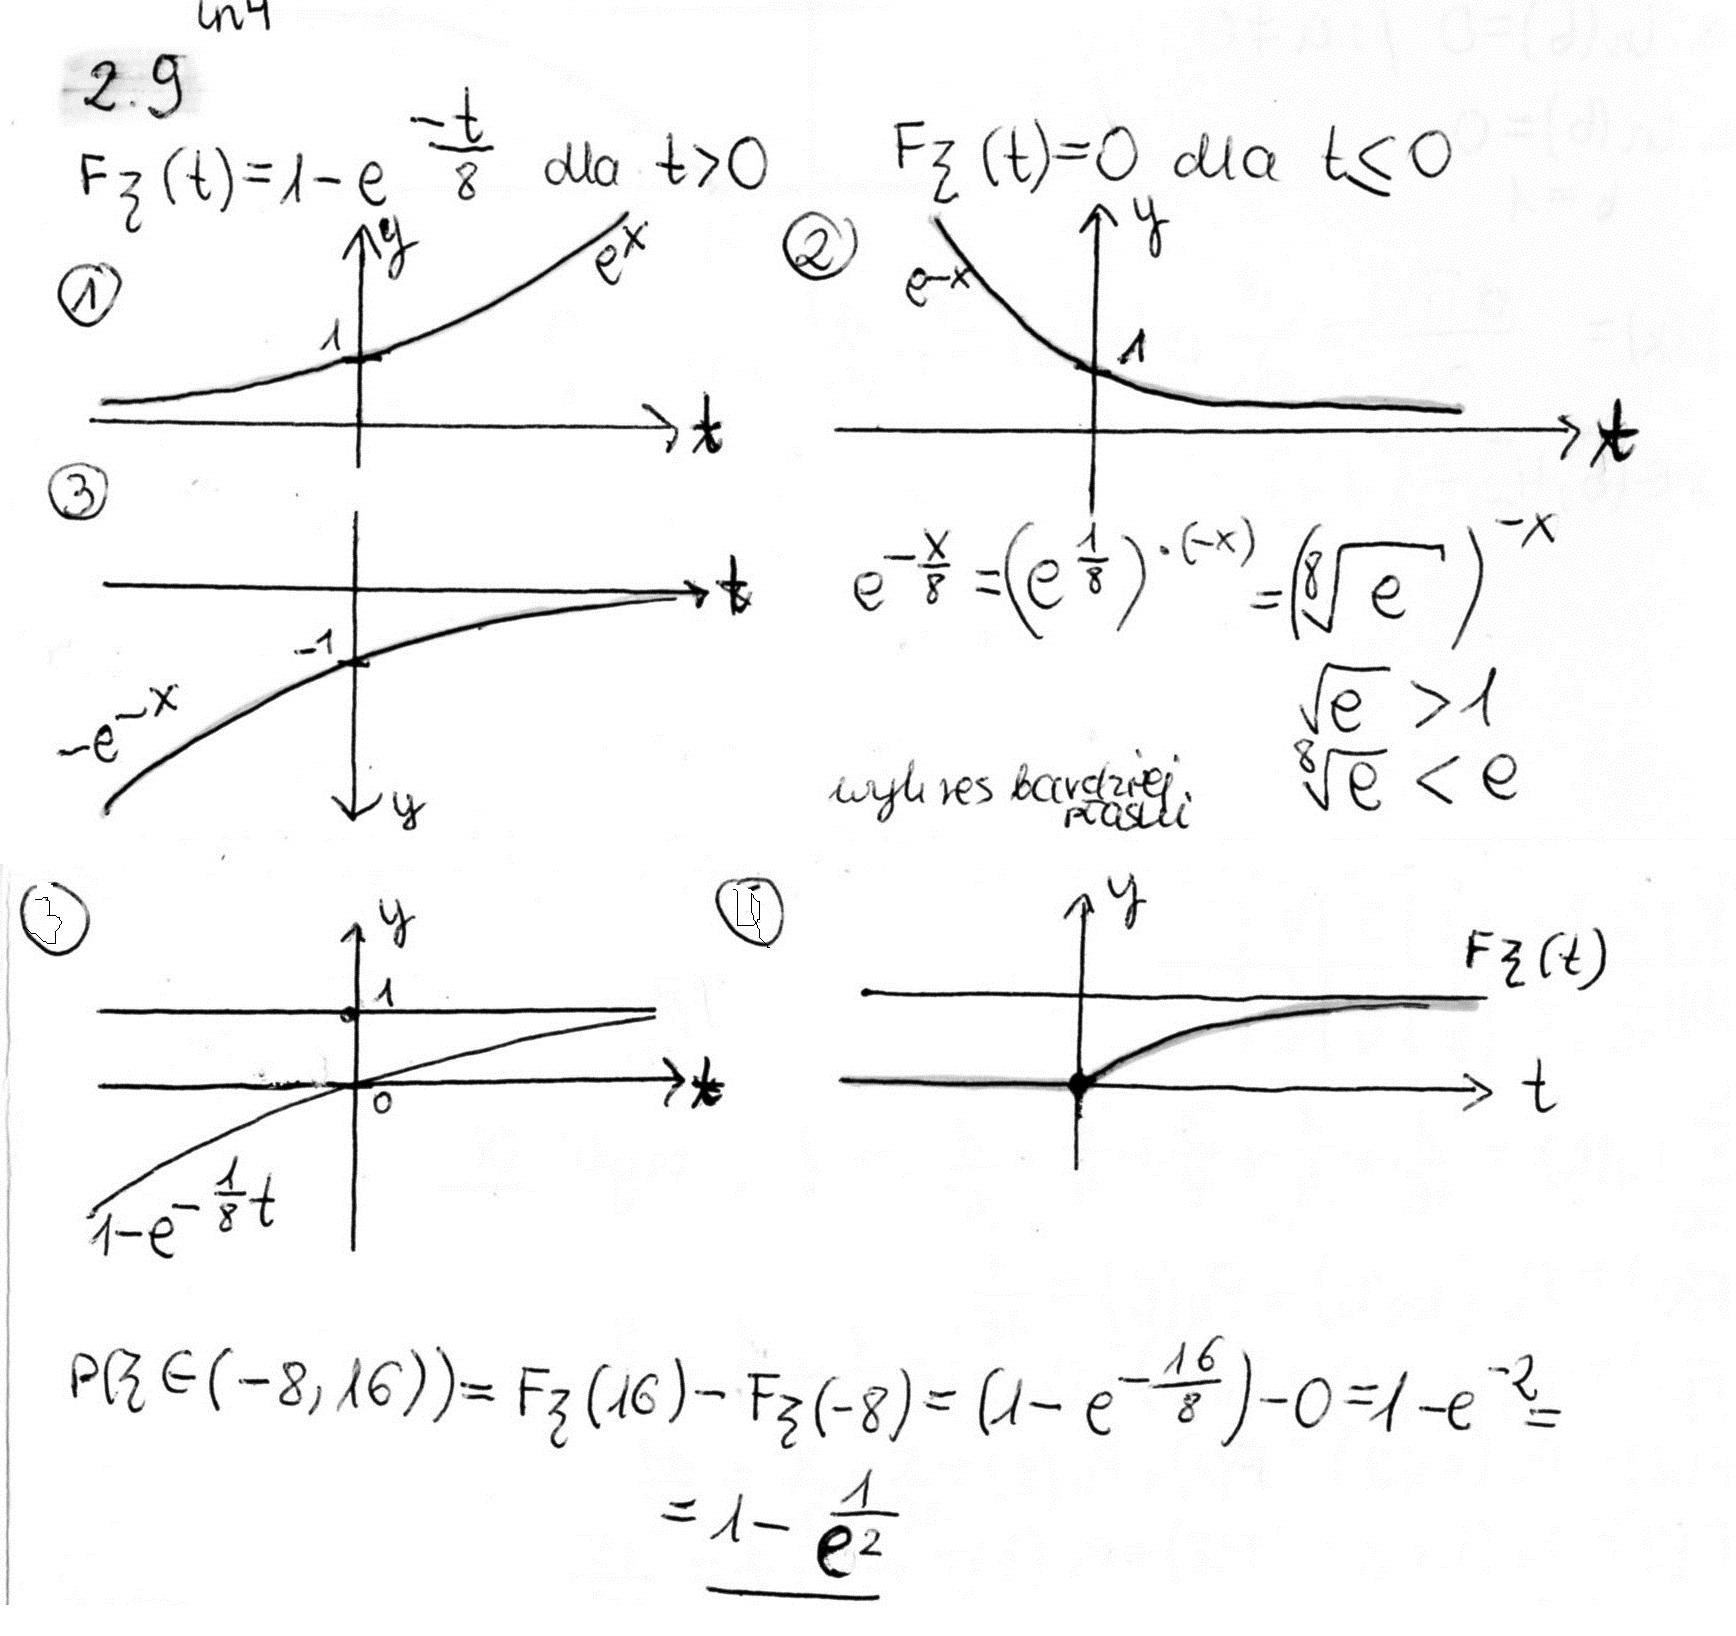 ln4
2.9
Fξ(t)=1-e^{-t/8} dla t>0 Fξ(t)=0 dla t≤0
① y e^x 1 t
② y e^{-x} 1 t
③ t -1 -e^{-x} y
e^{-x/8} = (e^{1/8})^{·(-x)} = (⁸√e)^{-x}
√e > 1
⁸√e < e
wykres bardziej
płaski
③ y 1 t 0 1-e^{-1/8 t}
y Fξ(t) t
P(ξ∈(-8,16))= Fξ(16)-Fξ(-8)=(1-e^{-16/8})-0=1-e^{-2}=
= 1-1/e²